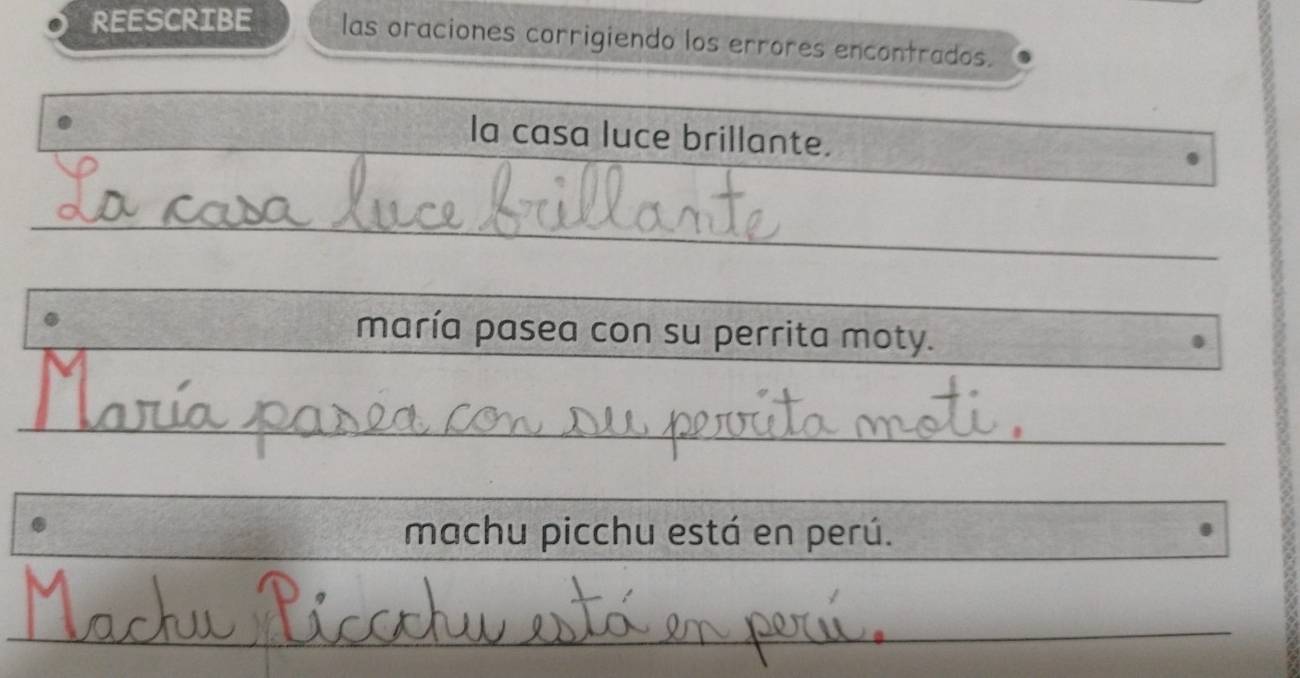 REESCRIBE las oraciones corrigiendo los errores encontrados.
la casa luce brillante.
La casa luce brillante
maría pasea con su perrita moty.
María pasea con su perrita moti.
machu picchu está en perú.
Machu Piccchu está en perú.